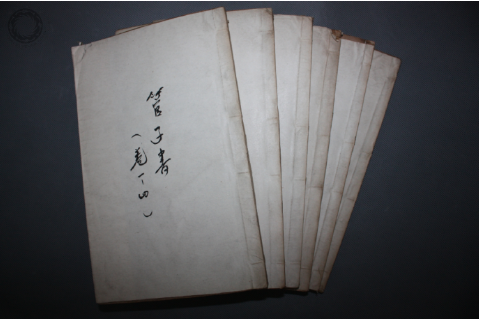 管子書
（卷一四）